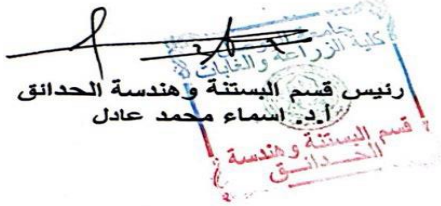 كلية الزراعة والغابات
رئيس قسم البستنة وهندسة الحدائق
أ.د. اسماء محمد عادل
قسم البستنة وهندسة
الحدائق